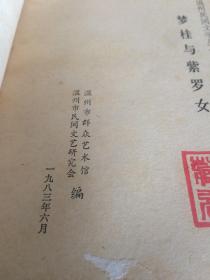 温州民间文学
梦桂与紫罗女
温州市群众艺术馆
温州市民间文艺研究会
编
一九八三年六月